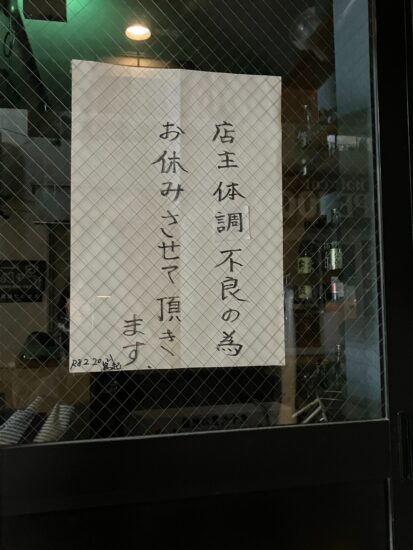 店主体調不良の為
お休みさせて頂き
ます、
R8.2.20